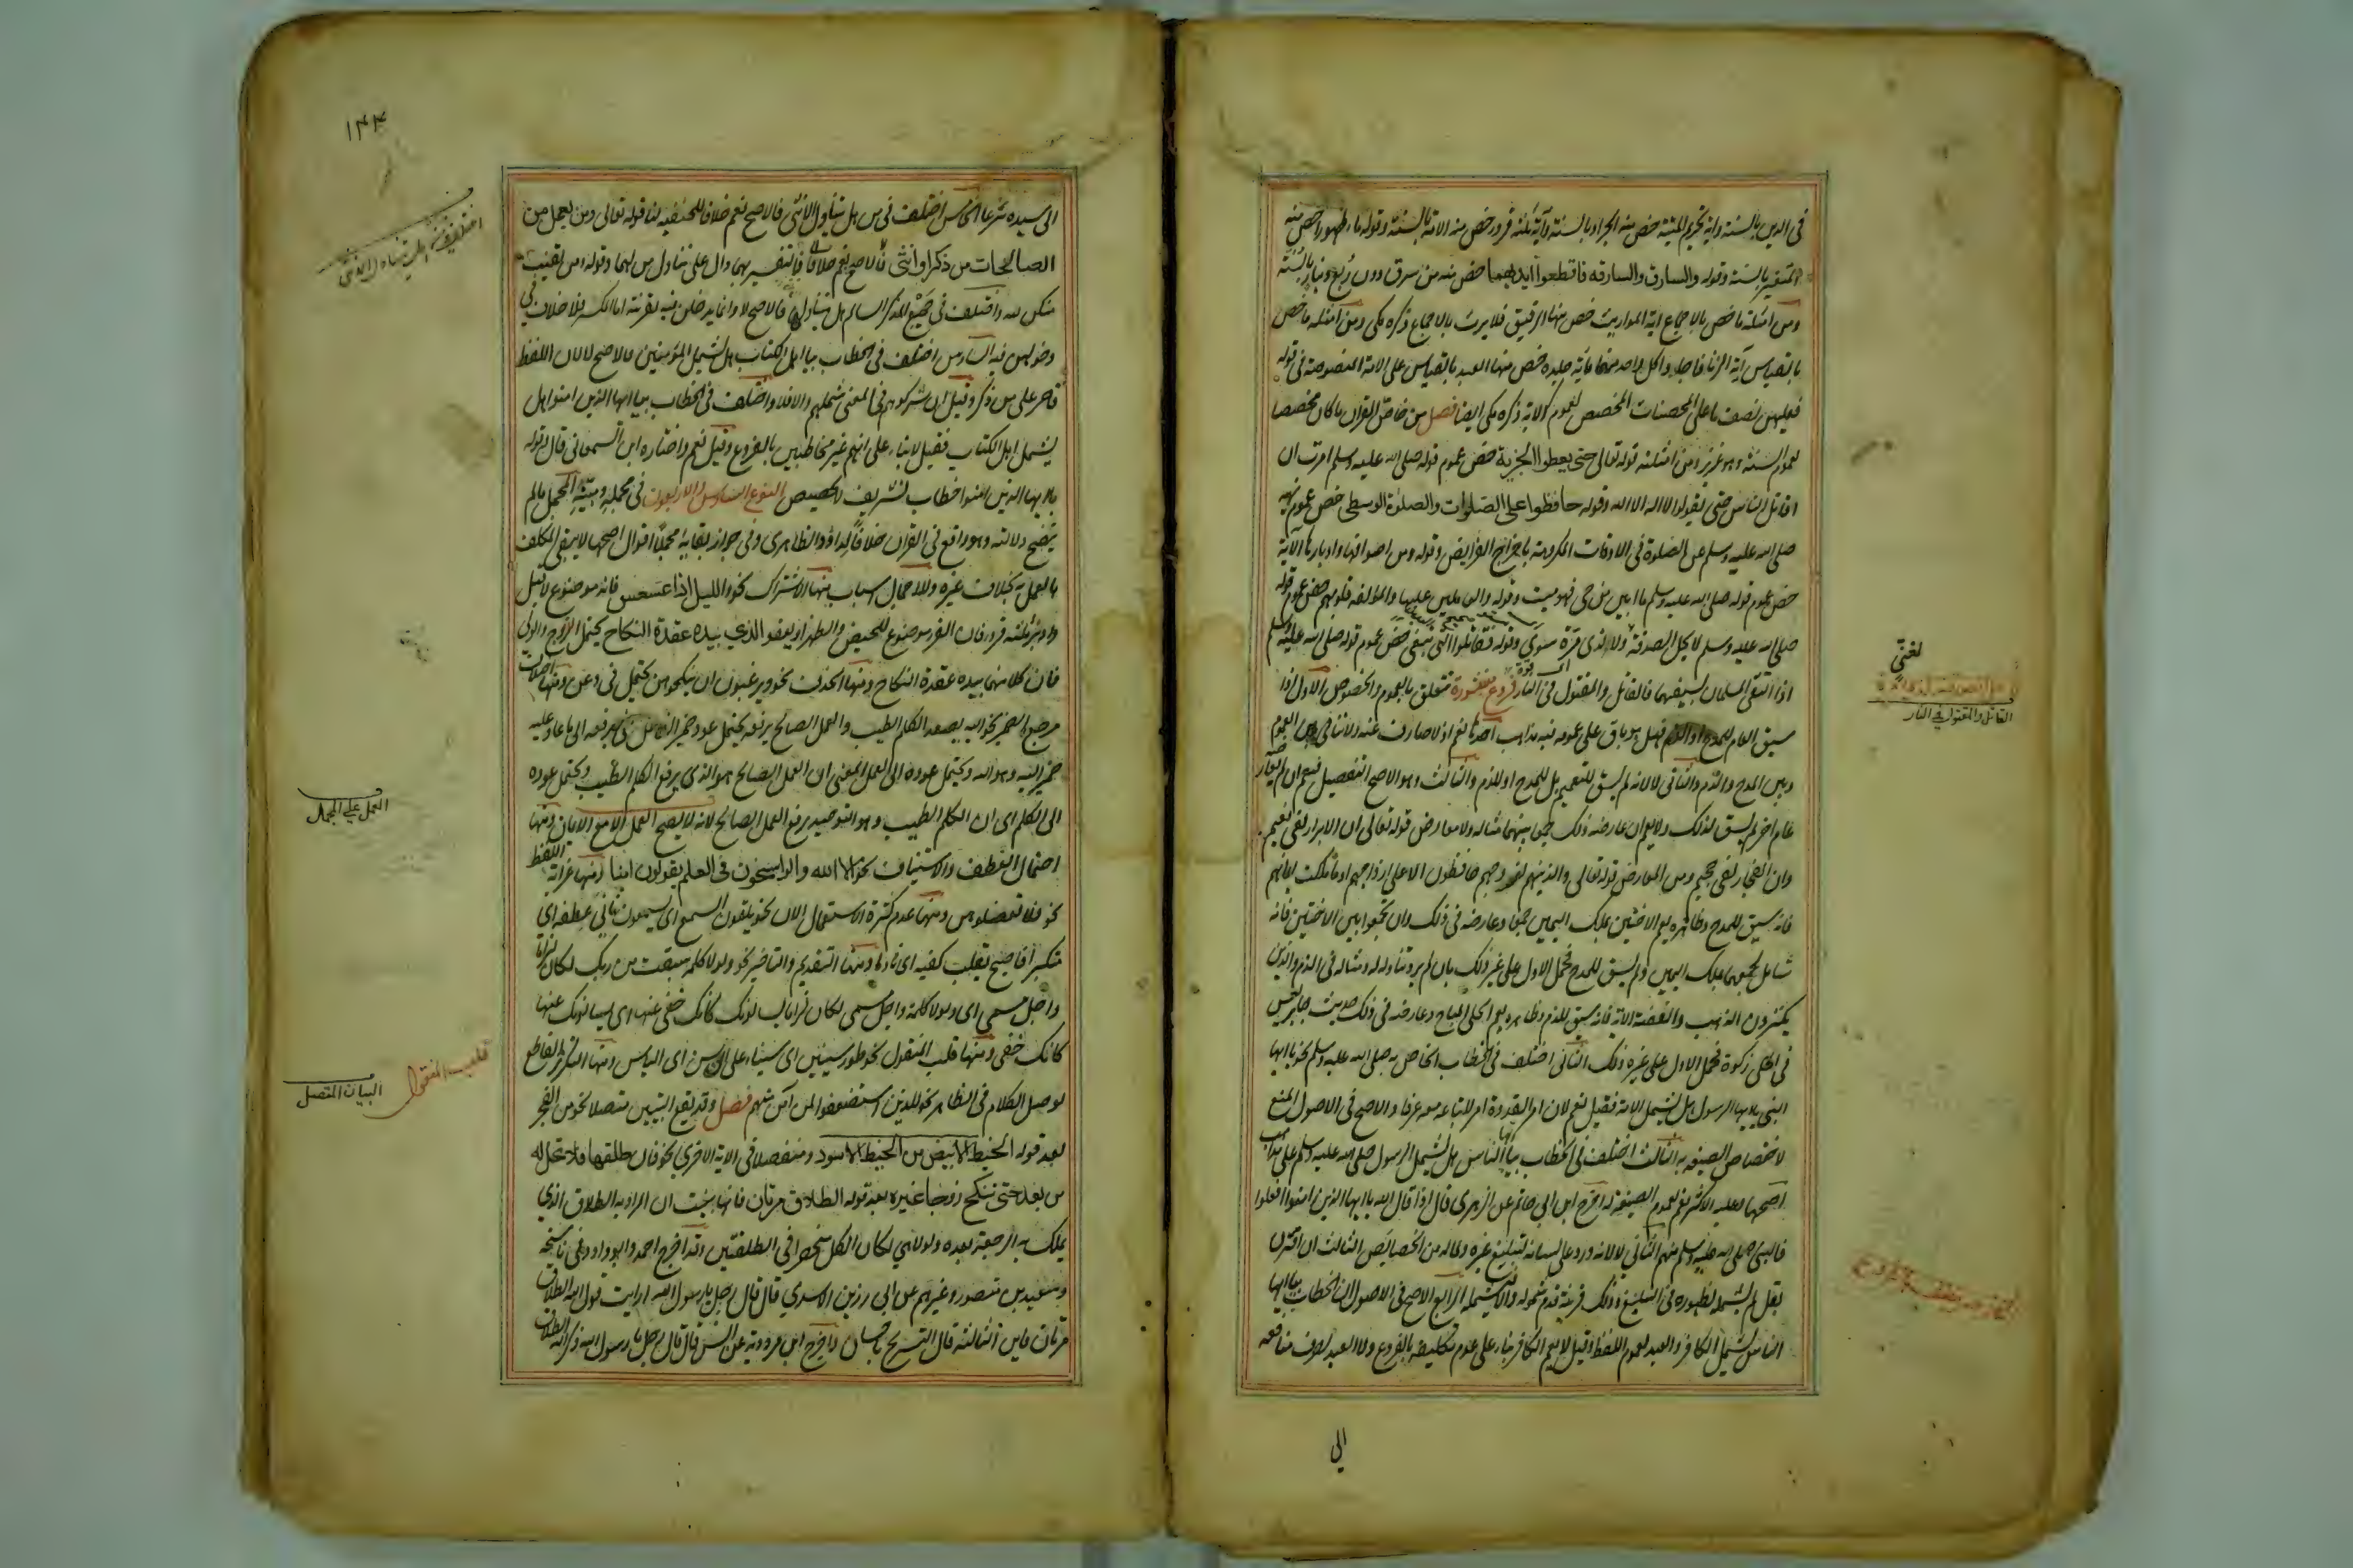 في الدين بالسنة واية تحريم الميتة خص منه الجراد بالسنة وآية ثلثة قروء خص منه الامة بالسنة وقوله ماء طهورا خص منه
المتغير بالسنة وقوله والسارق والسارقه فاقطعوا ايديهما خص منه من سرق دون ربع دينار بالسنة
ومن امثلة ما خص بالاجماع اية المواريث خص منها الرقيق فلا يرث بالاجماع ذكره مكي ومن امثلة ما خص
بالقياس آية الزنا فاجلدوا كل واحد منهما مأية جلدة خص منها العبد بالقياس على الامة المنصوصة في قوله
فعليهن نصف ما على المحصنات المخصص لعموم الاية ذكره مكي ايضا فصل من خاص القرآن ما كان مخصصا
لعموم السنة وهو عزيز ومن امثلته قوله تعالى حتى يعطوا الجزية خص عموم قوله صلى الله عليه وسلم امرت ان
اقاتل الناس حتى يقولوا لا اله الا الله وقوله حافظوا على الصلوات والصلوة الوسطى خص عموم نهيه
صلى الله عليه وسلم عن الصلوة في الاوقات المكروهة باخراج الفرايض وقوله ومن اصوافها واوبارها الآية
خص عموم قوله صلى الله عليه وسلم ما ابين من حي فهو ميت وقوله والعاملين عليها والمؤلفة قلوبهم خص عموم قوله
صلى الله عليه وسلم لا تحل الصدقة ولا لذي مرة سوي وقوله فقاتلوا التي تبغي خص عموم قوله صلى الله عليه وسلم
اذا التقى المسلمان بسيفيهما فالقاتل والمقتول في النار فروع منثورة تتعلق بالعموم والخصوص الاول اذا
سيق العام للمدح او الذم فهل هو باق على عمومه فيه مذاهب احدها نعم اذ لا صارف عنه ولا تنافي بين العموم
وبين المدح والذم والثاني لا لانه لم يسق للتعميم بل للمدح او للذم والثالث وهو الاصح التفصيل فيعم ان لم يعارضه
عام اخر لم يسق لذلك ولا يعم ان عارضه ذلك جمعا بينهما مثاله ولا معارض قوله تعالى ان الابرار لفي نعيم
وان الفجار لفي جحيم ومن المعارض قوله تعالى والذين هم لفروجهم حافظون الا على ازواجهم او ما ملكت ايمانهم
فانه سيق للمدح وظاهره يعم الاختين بملك اليمين جمعا وعارضه في ذلك وان تجمعوا بين الاختين فانه
شامل لجمعهما بملك اليمين ولم يسق للمدح فحمل الاول على غير ذلك بان لم يرد تناوله له ومثاله في الذم والذين
يكنزون الذهب والفضة الآية فانه سيق للذم وظاهره يعم الحلي المباح وعارضه في ذلك حديث جابر ليس
في الحلي زكوة فحمل الاول على غير ذلك الثاني اختلف في الخطاب الخاص به صلى الله عليه وسلم نحو يا ايها
النبي يا ايها الرسول هل يشمل الامة فقيل نعم لان امر القدوة امر لاتباعه معه عرفا والاصح في الاصول المنع
لاختصاص الصيغة به الثالث اختلف في الخطاب بيا ايها الناس هل يشمل الرسول صلى الله عليه وسلم على مذاهب
اصحها وعليه الاكثر نعم لعموم الصيغة له اخرج ابن ابي حاتم عن الزهري قال اذا قال الله يا ايها الذين امنوا افعلوا
فالنبي صلى الله عليه وسلم منهم الثاني لا لانه ورد على لسانه لتبليغ غيره ولما له من الخصائص الثالث ان اقترن
بقل لم يشمله لظهوره في التبليغ وذلك قرينة عدم شموله والا فيشمله الرابع الاصح في الاصول ان الخطاب بيا ايها
الناس يشمل الكافر والعبد لعموم اللفظ وقيل لا يعم الكافر بناء على عدم تكليفه بالفروع ولا العبد لصرف منافعه
الى
لغني
القاتل والمقتول في النار
١٤٤
الى سيده شرعا الخامس اختلف في من هل يتناول الانثى فالاصح نعم خلافا للحنفيه لنا قوله تعالى ومن يعمل من
الصالحات من ذكر او انثى فالتفسير بهما دال على تناول من لهما وقوله ومن يقنت
منكن لله واختلف في جمع المذكر السالم هل يتناولها فالاصح لا وانما يدخلن فيه بقرينة اما المكسر فلا خلاف في
دخولهن فيه السادس اختلف في الخطاب بيا اهل الكتاب هل يشمل المؤمنين فالاصح لا لان اللفظ
قاصر على من ذكر وقيل ان شركوهم في المعنى شملهم والا فلا واختلف في الخطاب بيا ايها الذين امنوا هل
يشمل اهل الكتاب فقيل لا بناء على انهم غير مخاطبين بالفروع وقيل نعم واختاره ابن السمعاني قال وقوله
يا ايها الذين امنوا خطاب تشريف لا تخصيص النوع السادس والاربعون في مجمله ومبينه المجمل ما لم
يتضح دلالته وهو واقع في القرآن خلافا لداؤد الظاهري وفي جواز بقايه مجملا اقوال اصحها لا يبقى المكلف
بالعمل به بخلاف غيره وللاجمال اسباب منها الاشتراك نحو والليل اذا عسعس فانه موضوع لاقبل
وادبر ثلثة قروء فان القرء موضوع للحيض والطهر او يعفو الذي بيده عقدة النكاح يحتمل الزوج والولي
فان كلا منهما بيده عقدة النكاح ومنها الحذف نحو وترغبون ان تنكحوهن يحتمل في وعن ومنها اختلاف
مرجع الضمير نحو اليه يصعد الكلم الطيب والعمل الصالح يرفعه يحتمل عود ضمير الفاعل في يرفعه الى ما عاد عليه
ضمير اليه وهو الله ويحتمل عوده الى العمل والمعنى ان العمل الصالح هو الذي يرفع الكلم الطيب ويحتمل عوده
الى الكلم اي ان الكلم الطيب وهو التوحيد يرفع العمل الصالح لانه لا يصح العمل الا مع الايمان ومنها
احتمال العطف والاستيناف نحو الا الله والراسخون في العلم يقولون امنا ومنها غرابة اللفظ
نحو فلا تعضلوهن ومنها عدم كثرة الاستعمال الان نحو يلقون السمع اي يسمعون ثاني عطفه اي
متكبرا فاصبح يقلب كفيه اي نادما ومنها التقديم والتاخير نحو ولولا كلمة سبقت من ربك لكان لزاما
واجل مسمى اي ولولا كلمة واجل مسمى لكان لزاما يسالونك كانك حفي عنها اي يسالونك عنها
كانك حفي ومنها قلب المنقول نحو طور سينين اي سيناء على الياسين اي الياس ومنها التكرير القاطع
لوصل الكلام في الظاهر نحو للذين استضعفوا لمن آمن منهم فصل وقد يقع التبيين متصلا نحو من الفجر
بعد قوله الخيط الابيض من الخيط الاسود ومنفصلا في الاية الاخرى نحو فان طلقها فلا تحل له
من بعد حتى تنكح زوجا غيره بعد قوله الطلاق مرتان فانها بينت ان المراد به الطلاق الذي
يملك به الرجعة بعده ولولا هي لكان الكل منحصرا في الطلقتين وقد اخرج احمد وابو داود في ناسخه
وسعيد بن منصور وغيرهم عن ابي رزين الاسدي قال قال رجل يا رسول الله ارايت قول الله الطلاق
مرتان فاين الثالثة قال التسريح باحسان واخرج ابن مردويه عن انس قال قال رجل يا رسول الله ذكر الله الطلاق
العمل على المجمل
قلب المنقول
البيان المتصل